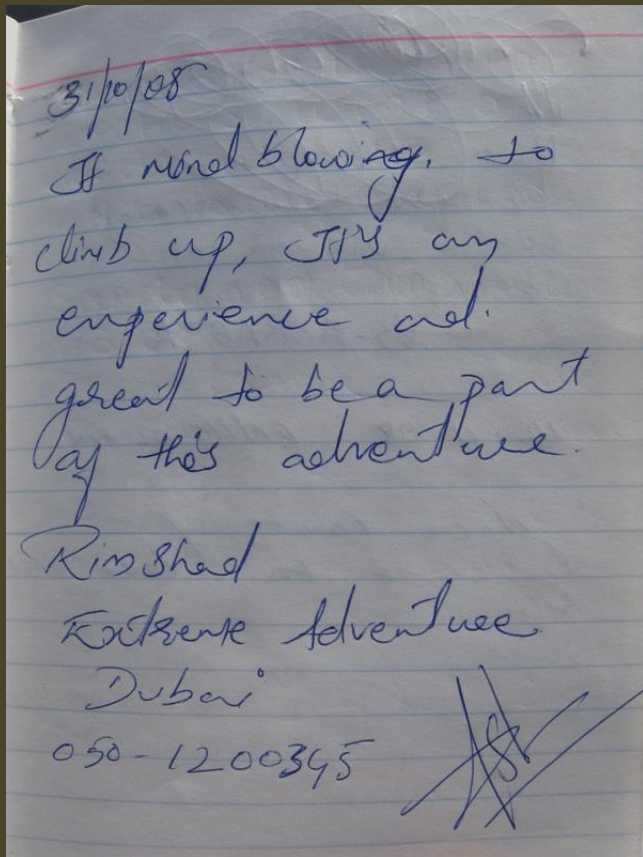 31/10/08
It mind blowing, to
climb up, It's an
experience and
great to be a part
of this adventure.
Rimshad
Extreme Adventure
Dubai
050-1200345